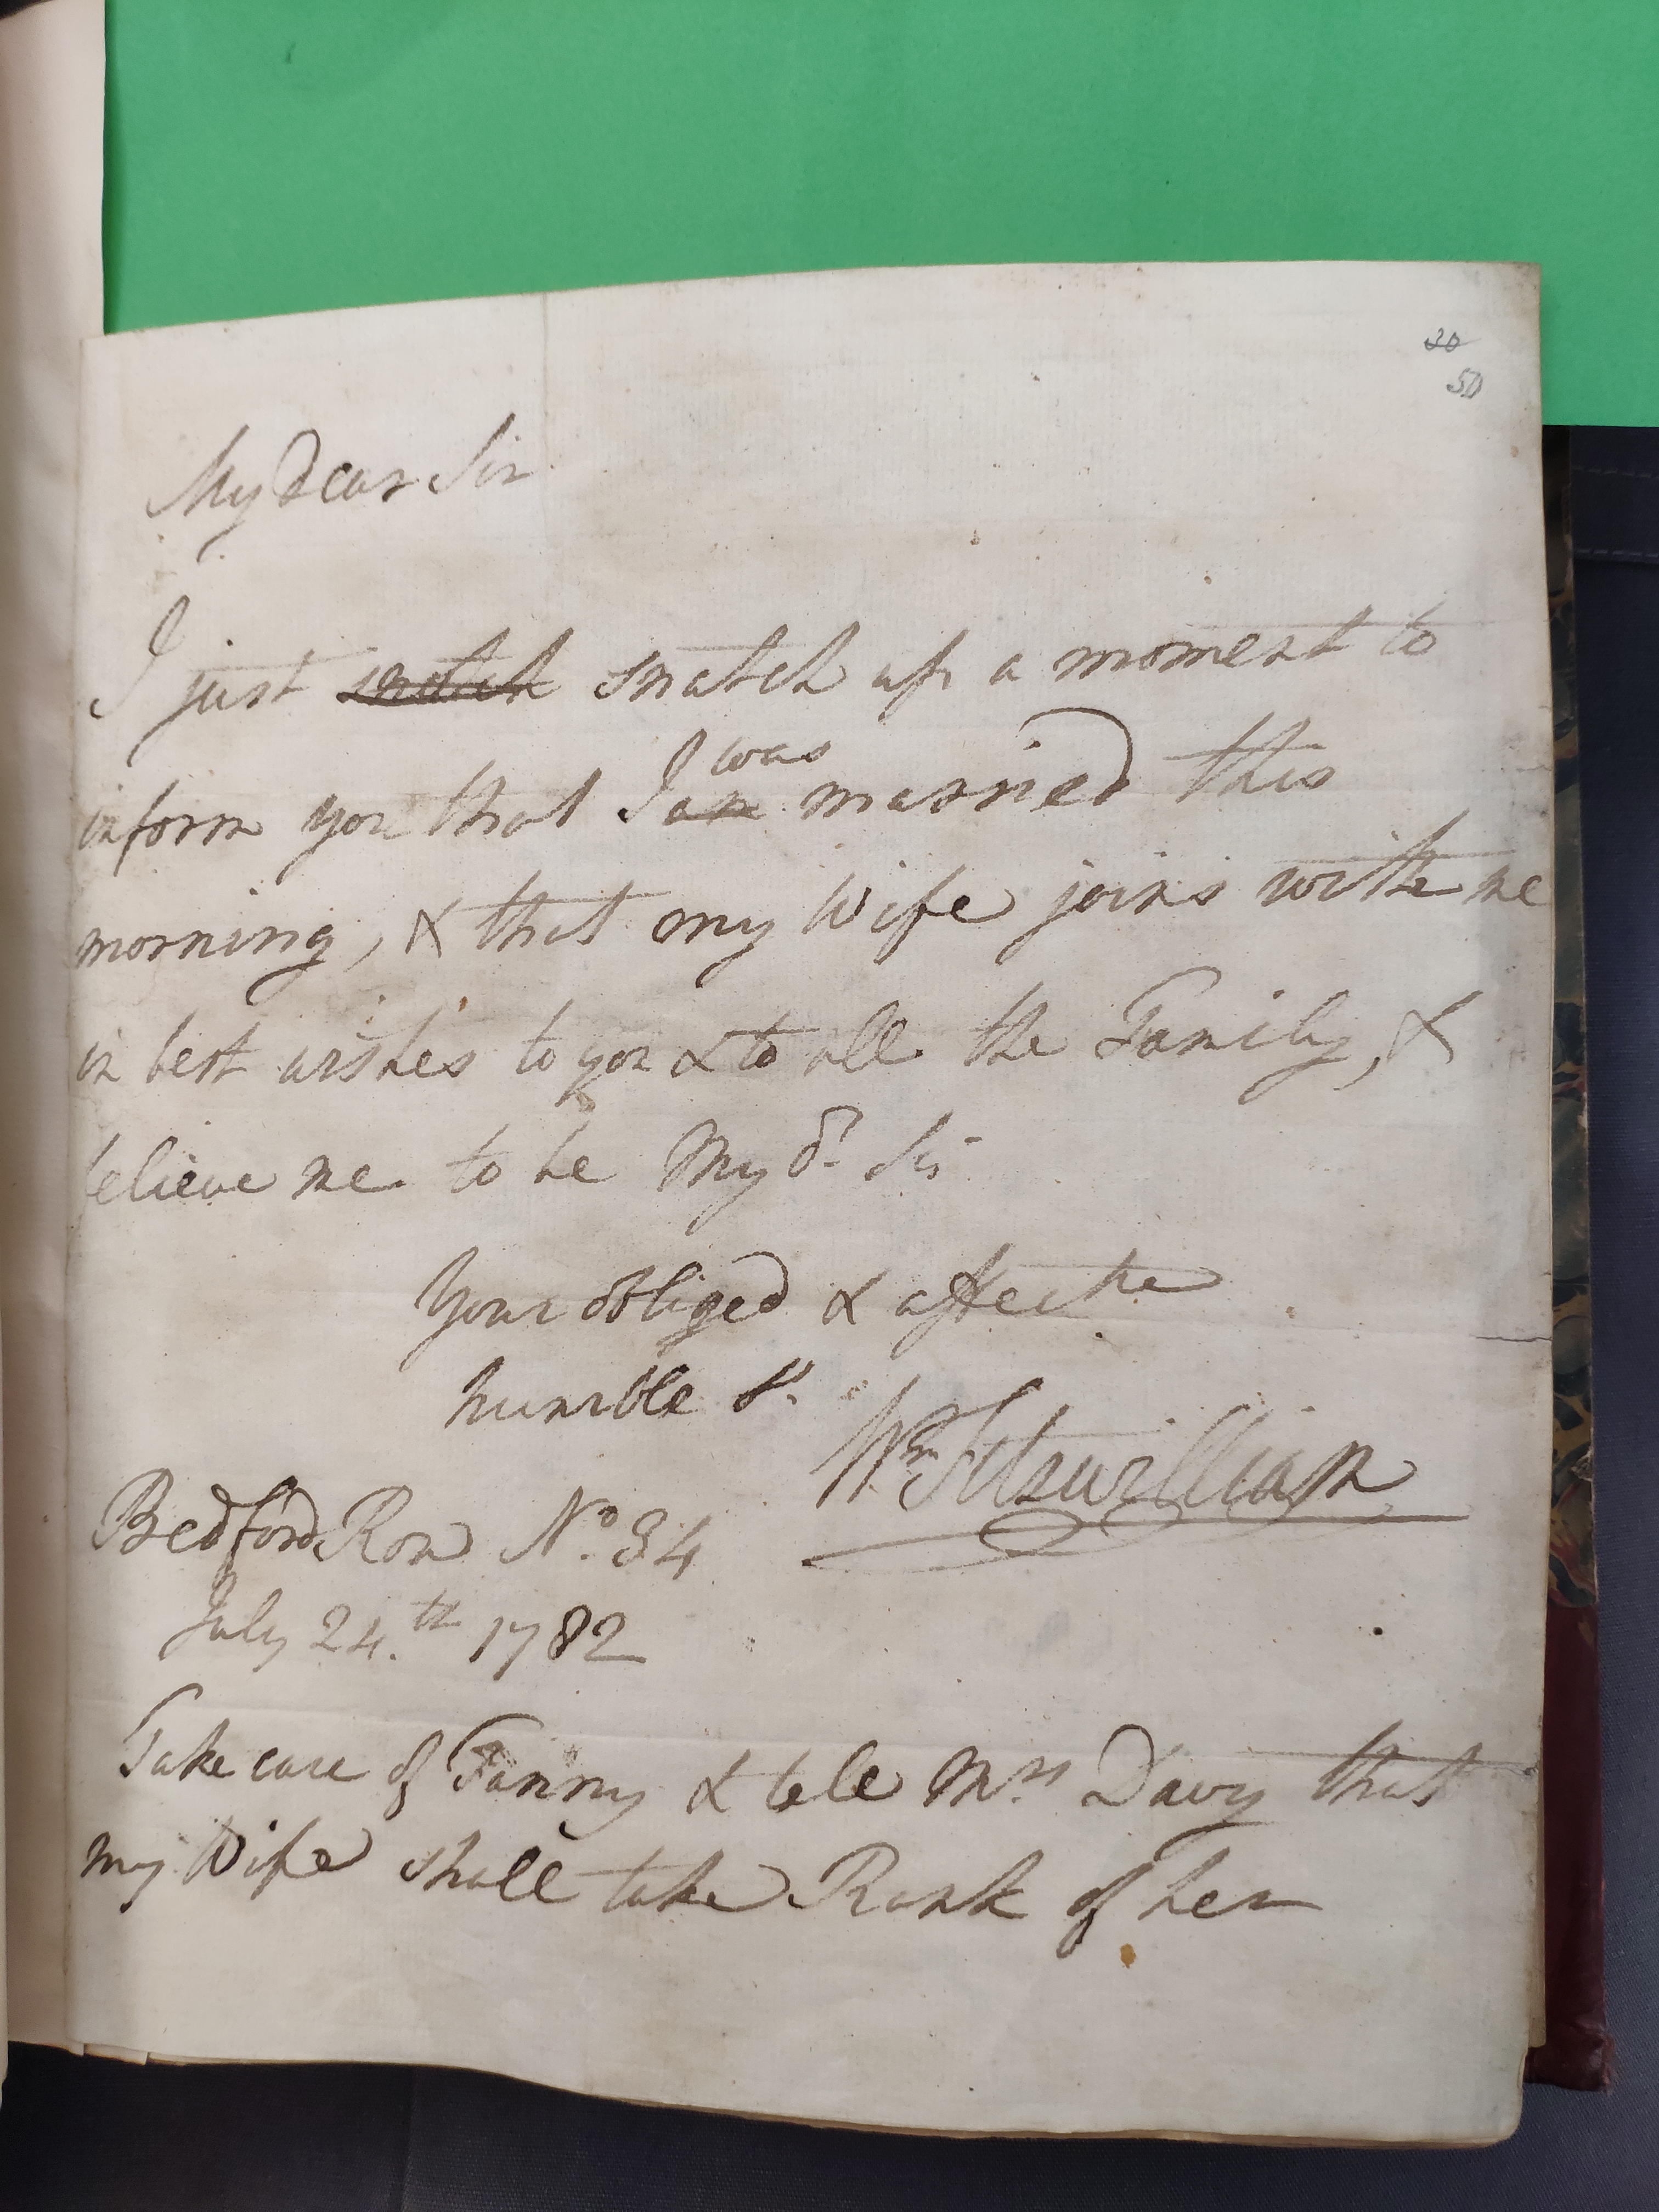 30
50
My Dear Sir
I just snatch snatch up a moment to
was
inform you that I am married this
morning, & that my Wife joins with me
in best wishes to you & to all the Family, &
believe me to be My dr. Sir
Your obliged & affecte
humble St.
Wm Fitzwilliam
Bedford Row No. 34
July 24.th 1782
Take care of Fanny & tell Mrs. Davy that
my Wife shall take Rank of her